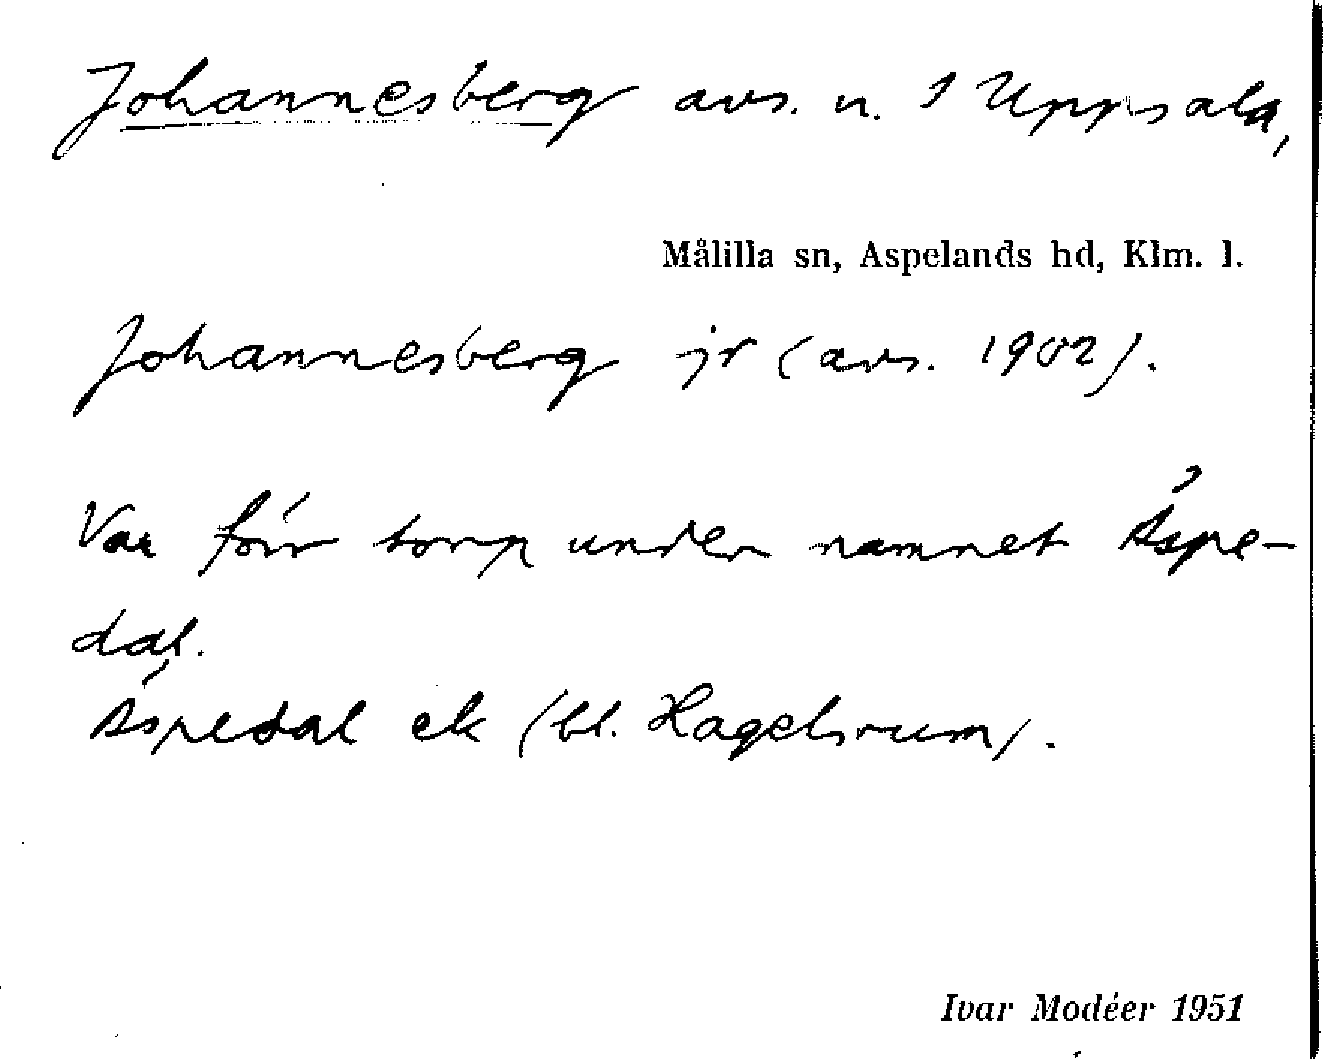 Johannesberg avs. u. 1 Uppsala,
Målilla sn, Aspelands hd, Klm. l.
Johannesberg jr (avs. 1902).
Var förr torp under namnet Äspe-
dal.
Äspedal ek (bl. Hagelsrum).
Ivar Modéer 1951